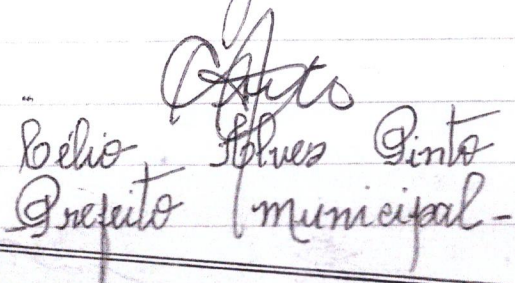 Célio Alves Pinto
Prefeito municipal-